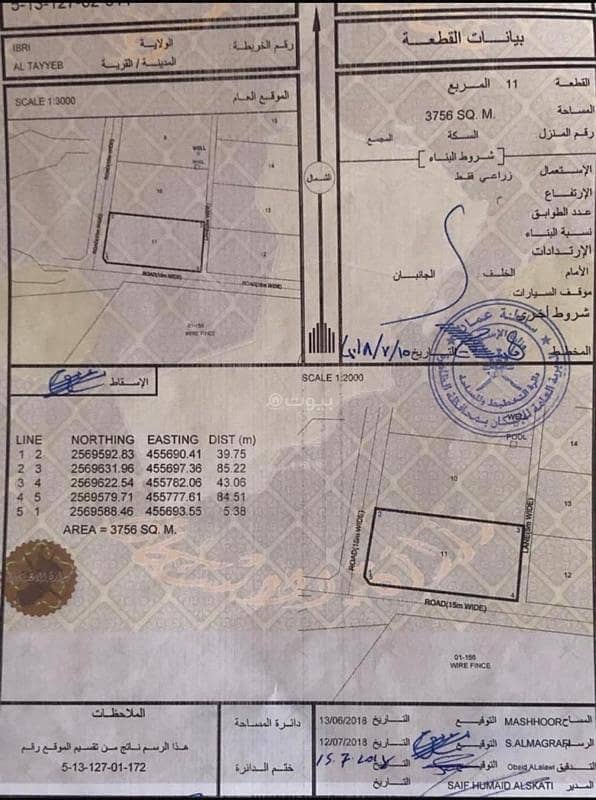 5-13-127-02-011
بيانات القطعة
رقم الخريطة : الولاية IBRI
المدينة / القرية AL TAYYEB
القطعة 11 المربع
المساحة 3756 SQ. M.
رقم المنزل السكة المجمع
شروط البناء
الإستعمال زراعي فقط
الإرتفاع م
عدد الطوابق
نسبة البناء
الإرتدادات
الأمام الخلف الجانبان
موقف السيارات
شروط أخرى
المخطط التاريخ
SCALE 1:3000 الموقع العام
15
9
WELL
14
10
13
11
12
ROAD(15m WIDE)
01-156
WIRE FINCE
الشمال
سلطنة عمان
بيوت
الإسقاط
SCALE 1:2000
LINE NORTHING EASTING DIST (m)
1 2 2569592.83 455690.41 39.75
2 3 2569631.96 455697.36 85.22
3 4 2569622.54 455782.06 43.06
4 5 2569579.71 455777.61 84.51
5 1 2569588.46 455693.55 5.38
AREA = 3756 SQ. M.
WELL
POOL
14
10
13
2
3
11
12
1
5
4
ROAD(15m WIDE)
LANE(5m WIDE)
ROAD(15m WIDE)
01-156
WIRE FINCE
الملاحظات
هذا الرسم ناتج من تقسيم الموقع رقم
5-13-127-01-172
دائرة المساحة
ختم الدائرة
المساح MASHHOOR التوقيع التاريخ 13/06/2018
الرسام S.ALMAGRAFI التوقيع التاريخ 12/07/2018
التدقيق Obaid ALalawi التوقيع التاريخ 15.7.2018
المدير SAIF HUMAID ALSKATI التاريخ